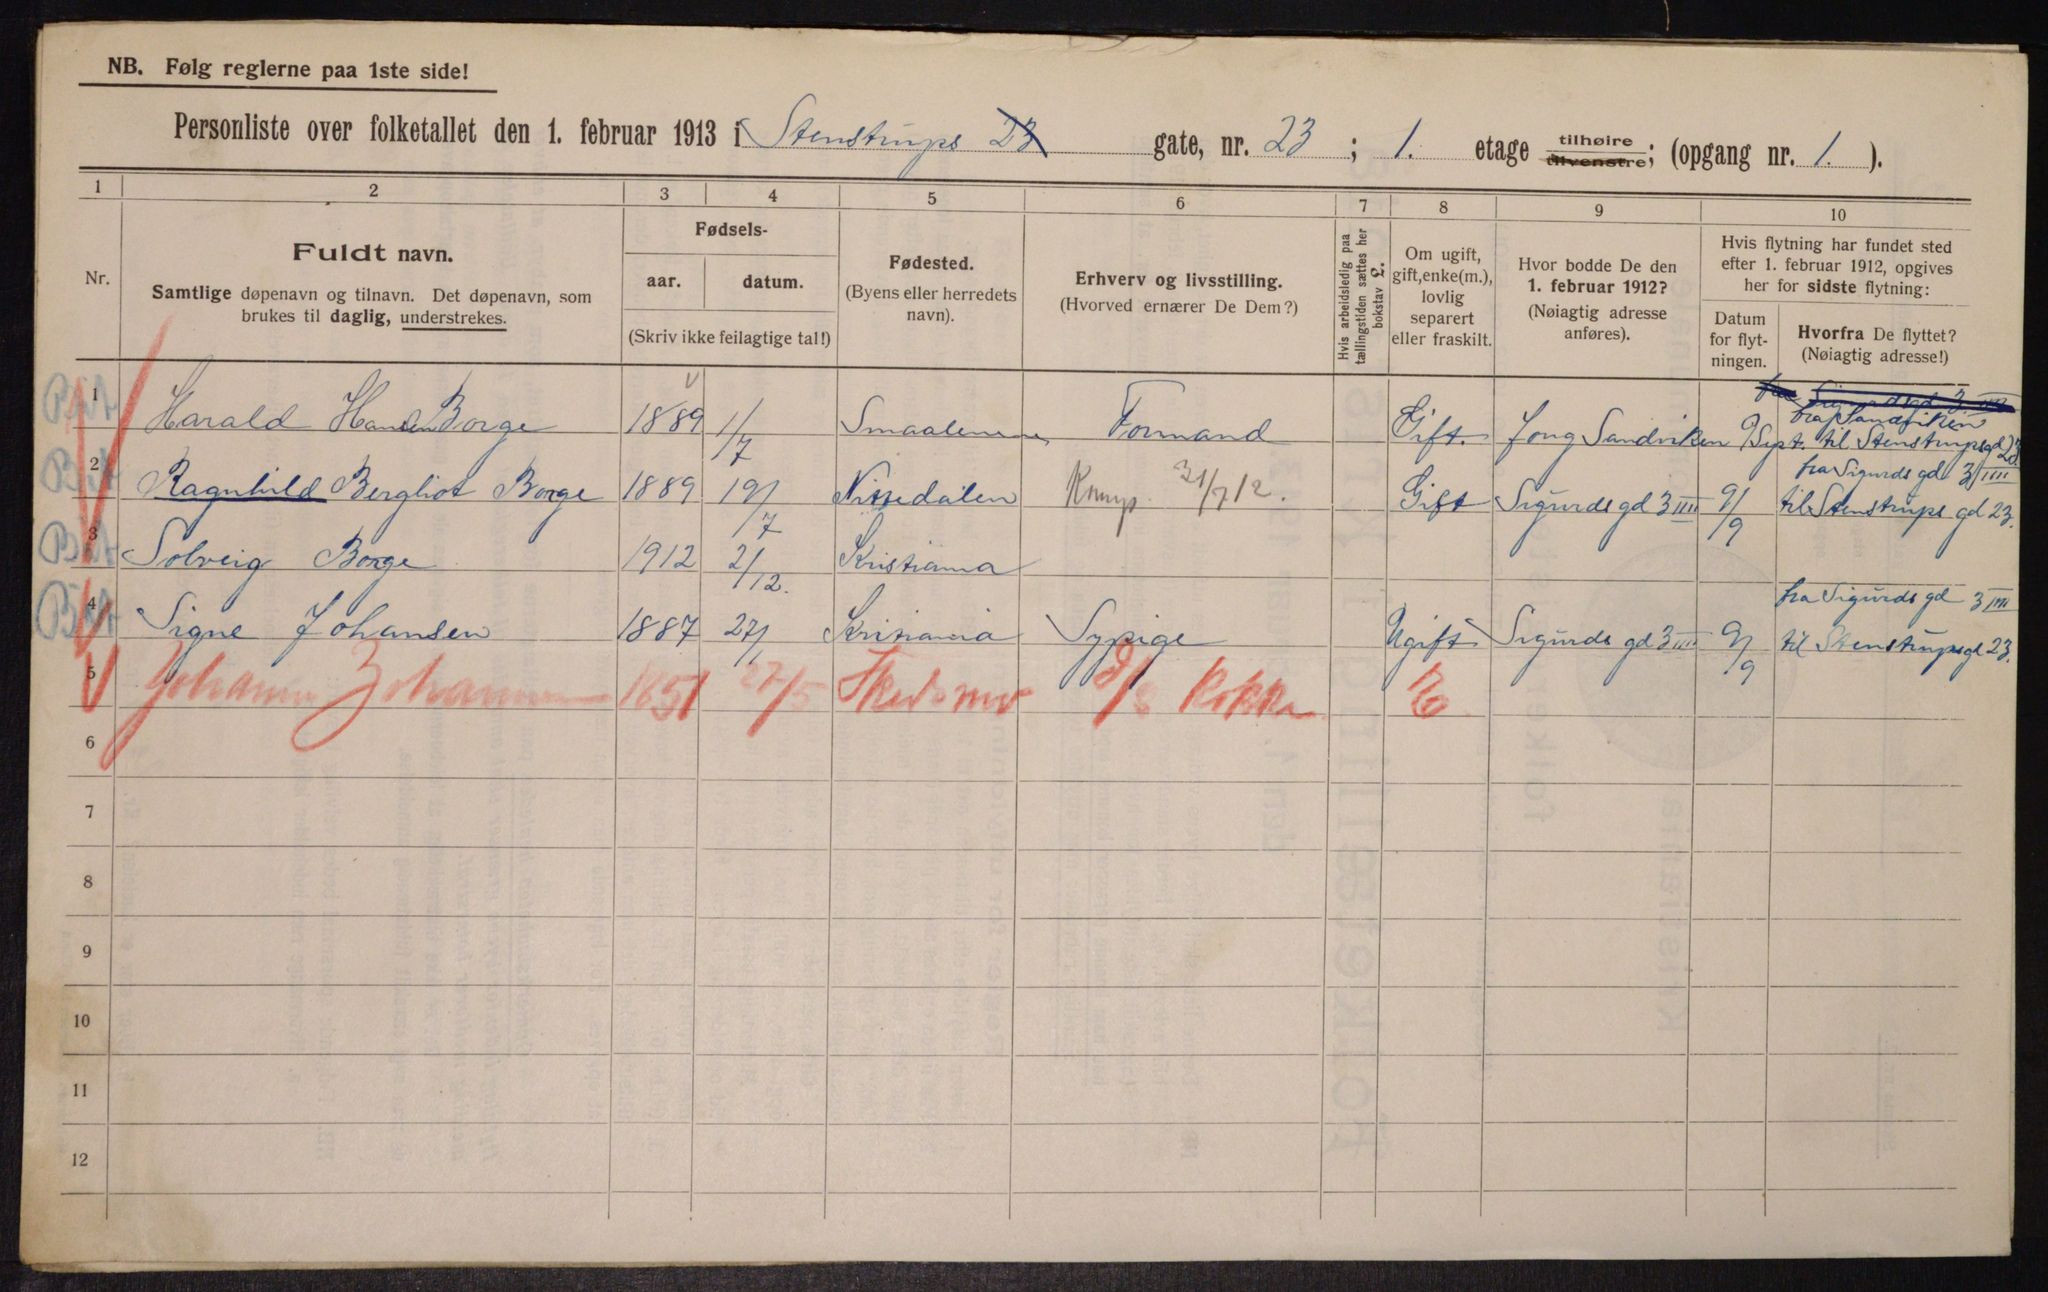 NB. Følg reglerne paa 1ste side!
Personliste over folketallet den 1. februar 1913 i Stenstrups 23 gate, nr. 23 ; 1. etage tilhøire tilvenstre; (opgang nr. 1. ).
1 2 3 4 5 6 7 8 9 10
Nr.
Fuldt navn.
Samtlige døpenavn og tilnavn. Det døpenavn, som
brukes til daglig, understrekes.
Fødsels-
aar. datum.
(Skriv ikke feilagtige tal!)
Fødested.
(Byens eller herredets
navn).
Erhverv og livsstilling.
(Hvorved ernærer De Dem?)
Hvis arbeidsledig paa
tællingstiden sættes her
bokstav L.
Om ugift,
gift, enke(m.),
lovlig
separert
eller fraskilt.
Hvor bodde De den
1. februar 1912?
(Nøiagtig adresse
anføres).
Hvis flytning har fundet sted
efter 1. februar 1912, opgives
her for sidste flytning:
Datum
for flyt-
ningen.
Hvorfra De flyttet?
(Nøiagtig adresse!)
fra Sigurdsgd 3 IIII
fra Sandviken
1 Harald Hansen Borge 1889 1/7 Smaalenene Formand Gift. Jong Sandviken 9/Sept. til Stenstrupsgd 23
fra Sigurds gd 3 IIII
2 Ragnhild Bergliot Borge 1889 19/7 Nittedalen 31/7 12. Gift Sigurds gd 3 IIII 9/9 til Stenstrups gd 23.
3 Solveig Borge 1912 2/12. Kristiania
fra Sigurds gd 3 IIII
4 Signe Johansen 1887 27/1 Kristiania Sypige Ugift Sigurds gd 3 IIII 9/9 til Stenstrupsgd 23.
5 Johanne Johannesen 1851 27/5 Skedsmo Kokke E
6
7
8
9
10
11
12